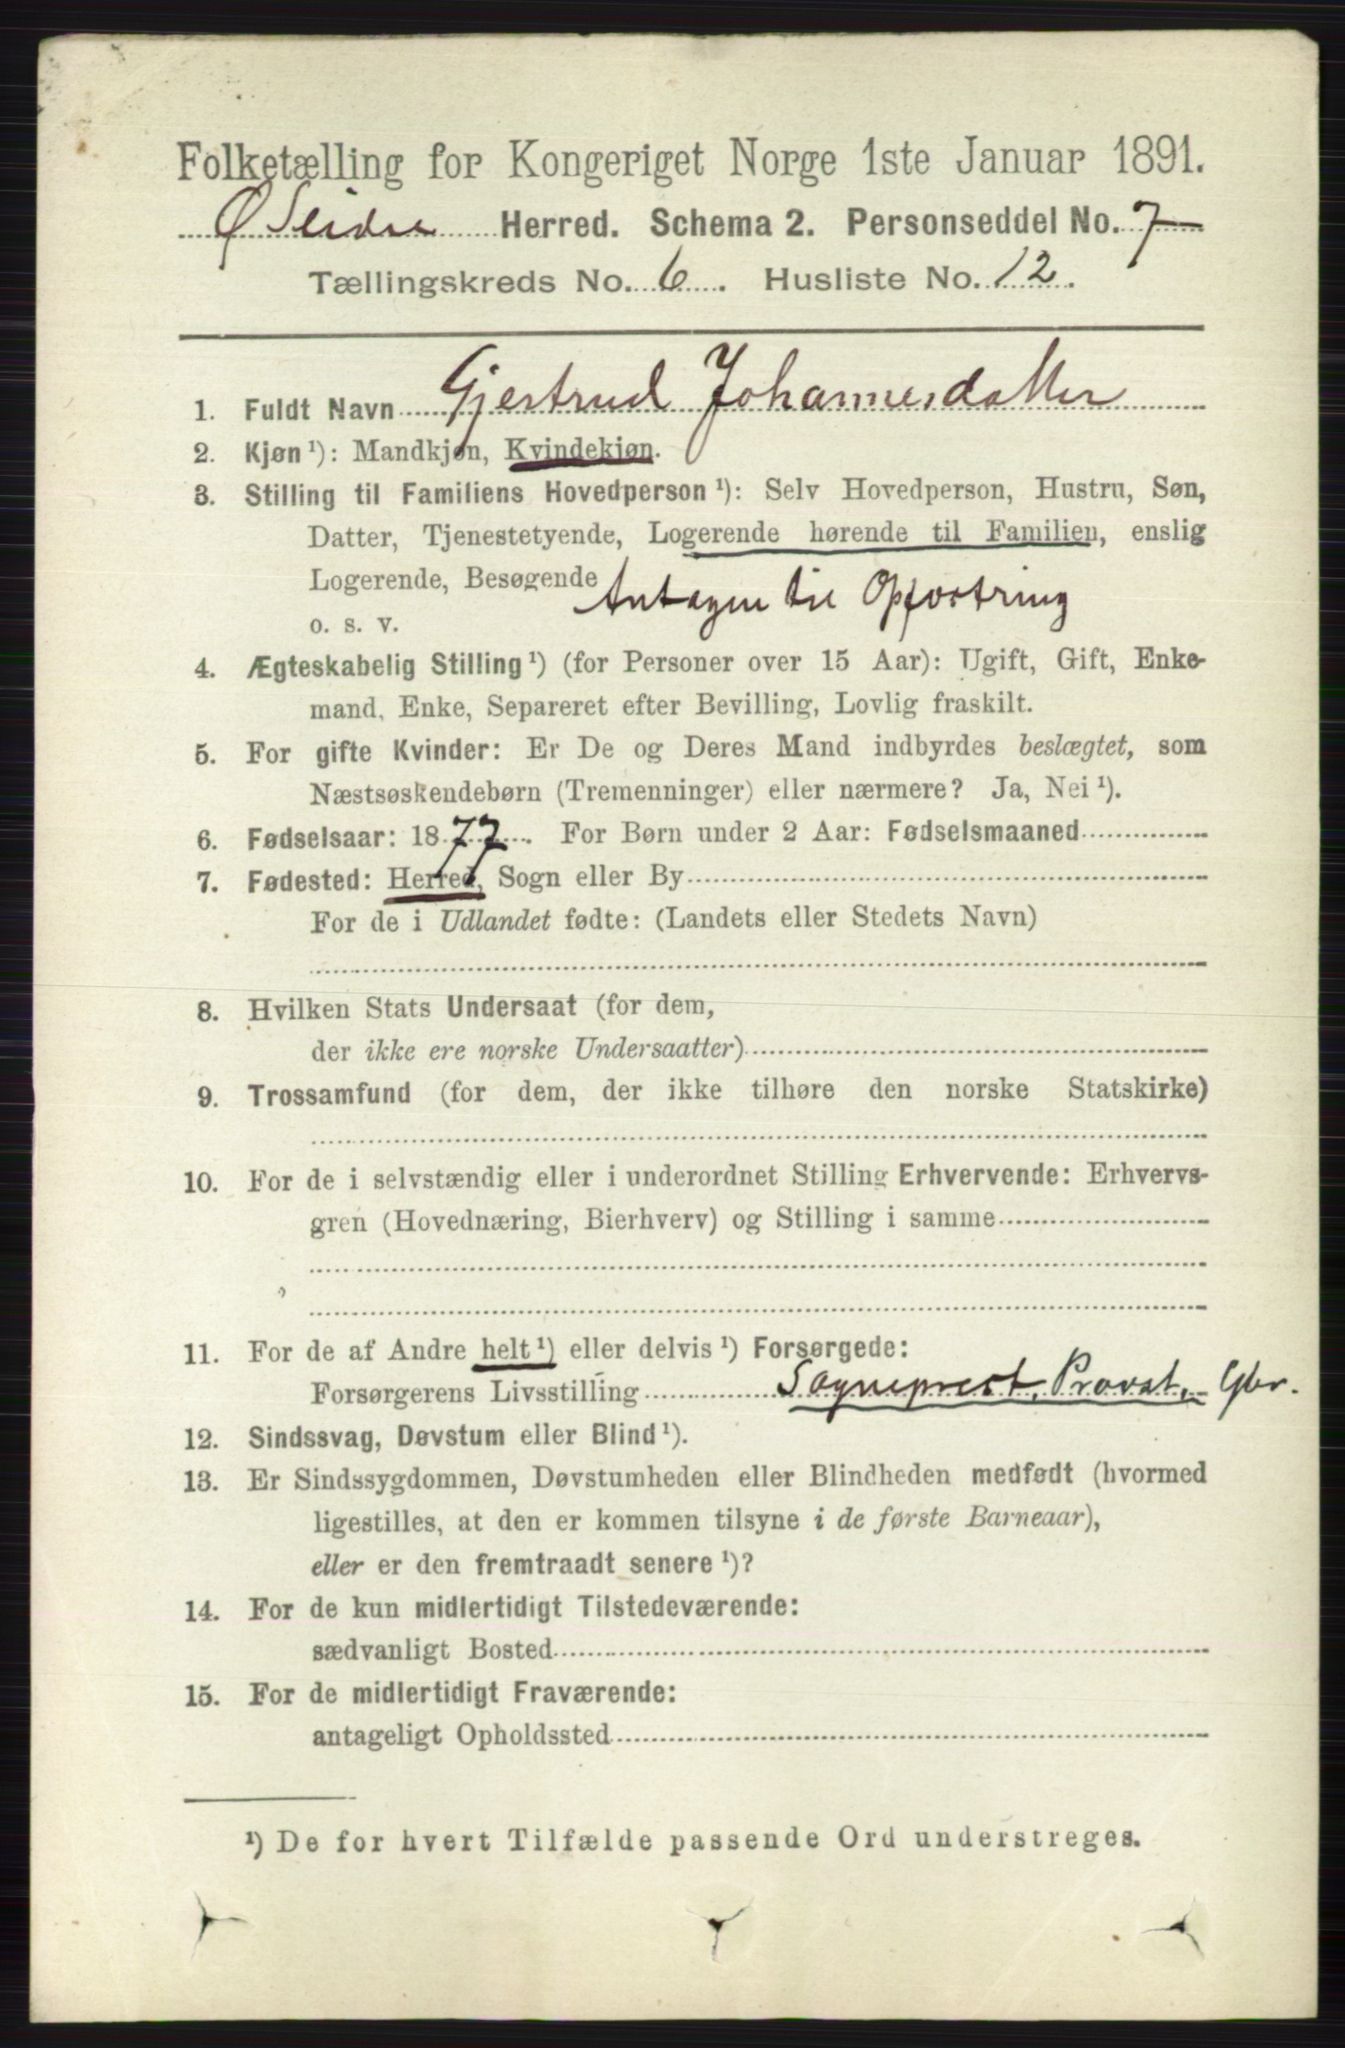 Folketælling for Kongeriget Norge 1ste Januar 1891.
Ø Slidre Herred. Schema 2. Personseddel No. 7
Tællingskreds No. 6. Husliste No. 12.
1. Fuldt Navn Gjertrud Johannesdatter
2. Kjøn ¹): Mandkjøn, Kvindekjøn.
3. Stilling til Familiens Hovedperson ¹): Selv Hovedperson, Hustru, Søn,
Datter, Tjenestetyende, Logerende hørende til Familien, enslig
Logerende, Besøgende Antagen til Opfostring
o. s. v.
4. Ægteskabelig Stilling ¹) (for Personer over 15 Aar): Ugift, Gift, Enke-
mand, Enke, Separeret efter Bevilling, Lovlig fraskilt.
5. For gifte Kvinder: Er De og Deres Mand indbyrdes beslægtet, som
Næstsøskendebørn (Tremenninger) eller nærmere? Ja, Nei ¹).
6. Fødselsaar: 1877. For Børn under 2 Aar: Fødselsmaaned
7. Fødested: Herred, Sogn eller By
For de i Udlandet fødte: (Landets eller Stedets Navn)
8. Hvilken Stats Undersaat (for dem,
der ikke ere norske Undersaatter)
9. Trossamfund (for dem, der ikke tilhøre den norske Statskirke)
10. For de i selvstændig eller i underordnet Stilling Erhvervende: Erhvervs-
gren (Hovednæring, Bierhverv) og Stilling i samme
11. For de af Andre helt ¹) eller delvis ¹) Forsørgede:
Forsørgerens Livsstilling Sogneprest, Provst, Gbr.
12. Sindssvag, Døvstum eller Blind ¹).
13. Er Sindssygdommen, Døvstumheden eller Blindheden medfødt (hvormed
ligestilles, at den er kommen tilsyne i de første Barneaar),
eller er den fremtraadt senere ¹)?
14. For de kun midlertidigt Tilstedeværende:
sædvanligt Bosted
15. For de midlertidigt Fraværende:
antageligt Opholdssted
¹) De for hvert Tilfælde passende Ord understreges.